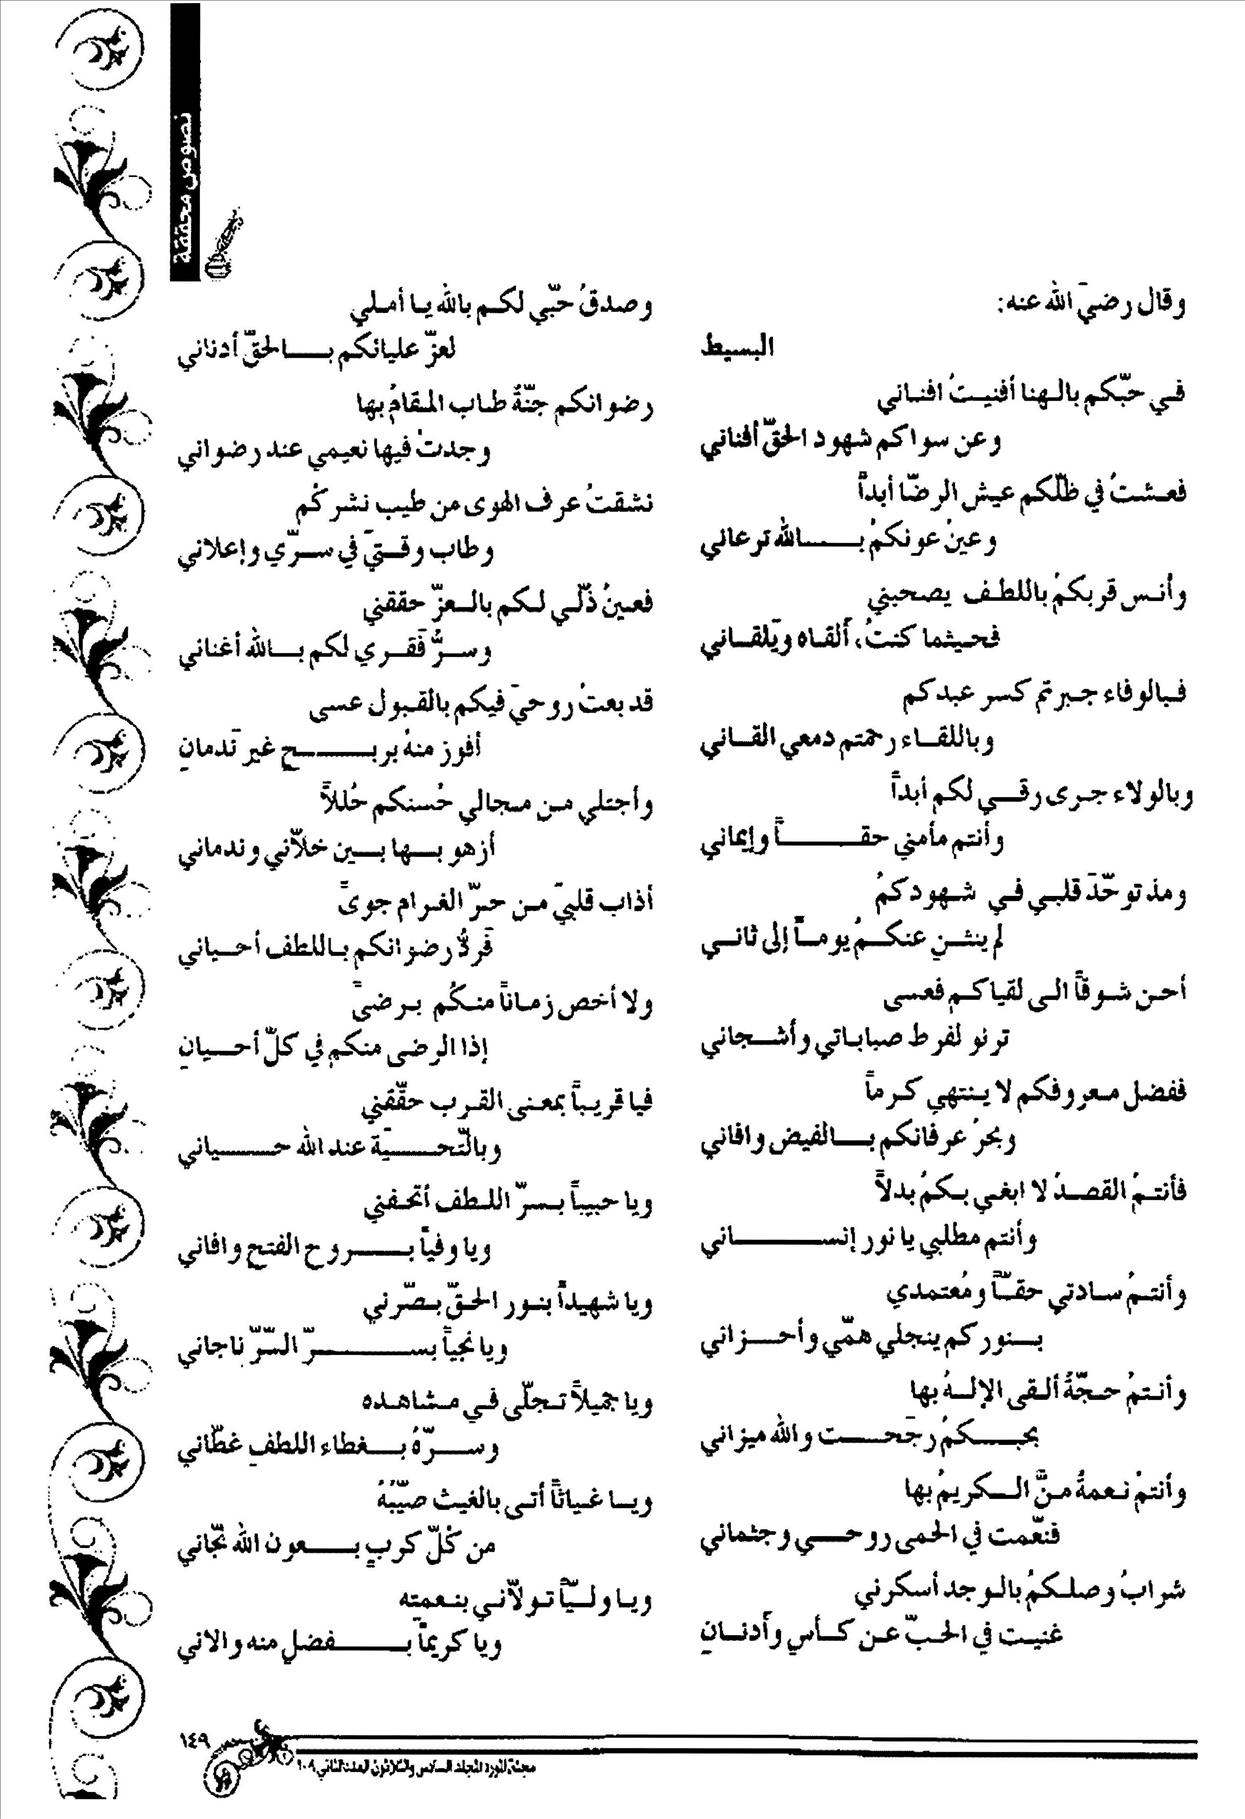 نصوص محققة
وقال رضيَ الله عنه:
البسيط
فـي حبّكم بالـهنا أفنيـتُ افنـاني
وعن سواكم شهود الحقّ أفناني
فعـشتُ في ظلّكم عيش الرضّا أبداً
وعينُ عونكمُ بـــالله ترعاني
وأنـس قربكمُ باللطـف يصحبني
فحـيثما كنتُ، ألقـاه ويَلقـاني
فـبالوفاء جـبرتم كسر عبدكم
وباللقـاء رحمتم دمعي القـاني
وبالولاء جـرى رقـي لكم أبداً
وأنتم مأمني حقـــاً وإيماني
ومذ توحّدَ قلبـي فـي شـهودكمُ
لم ينثـنِ عنكـمُ يومـاً إلى ثانـي
أحـن شـوقاً الـى لقياكـم فعسى
ترنو لفرط صباباتي وأشـجاني
ففضل مـعروفكم لا يـنتهي كـرماً
وبحرُ عرفانكم بـــالفيض وافاني
فأنتـمُ القصـدُ لا ابغـي بـكمُ بدلاً
وأنتم مطلبي يا نور إنســـاني
وأنتـمُ سـادتي حقـّاً ومُعتمدي
بـنوركم ينجلي همّي وأحـزاني
وأنـتمُ حـجّةٌ ألـقى الإلـهُ بها
بحبـكمُ رجَحـت والله ميزاني
وأنتمُ نـعمةٌ مـنَّ الـكريمُ بها
فنعّمت في الحمى روحـي وجثماني
شرابُ وصلـكمُ بالـوجد أسكرني
غنيـت في الحـبّ عـن كـأسٍ وأدنـانِ
وصدقُ حبّي لكـم بالله يـا أمـلي
لعزّ عليائكم بـــالحقّ أدناني
رضوانكم جنّةٌ طـاب المـقامُ بها
وجدتُ فيها نعيمي عند رضواني
نشقتُ عرف الهوى من طيب نشركُم
وطاب وقـتيَ في سـرّي وإعلاني
فعـينُ ذُلّـي لـكم بالـعزّ حققني
وسـرُّ فَقـري لكم بـالله أغناني
قد بعتُ روحيَ فيكم بالقـبول عسى
أفوز منهُ بربـــح غير نَدمانِ
وأجتلي مـن مـجالي حُسنكم حُللاً
أزهو بـها بـين خلاّني وندماني
أذاب قلبيَ مـن حـرّ الغـرام جوىً
فَردُّ رضوانكم بـاللطف أحـياني
ولا أخص زمـاناً منـكُم بـرضىً
إذا الرضى منكم في كلّ أحـيانِ
فيا قريـباً بمعـنى القـرب حقّقني
وبالتّحـيّة عند الله حـــياني
ويا حبيباً بـسرّ اللـطف أتحـفني
ويا وفياً بـــروح الفتح وافاني
ويا شهيداً بنـور الحـقّ بـصّرني
ويا نجياً بســـرّ السّرّ ناجاني
ويا جميلاً تـجلّى فـي مـشاهـده
وسـرّهُ بـغطاء اللطفِ غطّاني
ويـا غـياثاً أتـى بالغيث صيّبُهُ
من كُلّ كربٍ بـــعون الله نجّاني
ويـا ولـيّاً تـولاّنـي بنـعمتِه
ويا كريماً بـــفضل منه والاني
١٤٩
مجلة المورد المجلد السادس والثلاثون العدد الثاني ٢٠٠٩